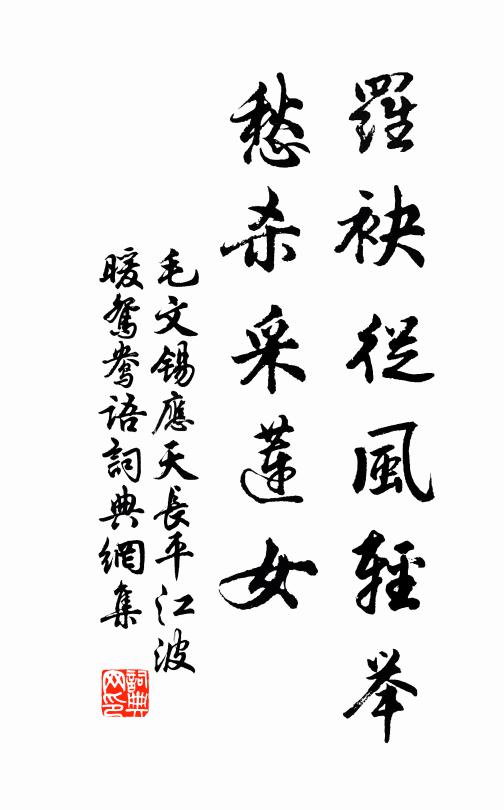 羅袂從風輕举
愁杀采蓮女
毛文锡應天長平江波
暖鴛鴦语詞典網集
詞典网印